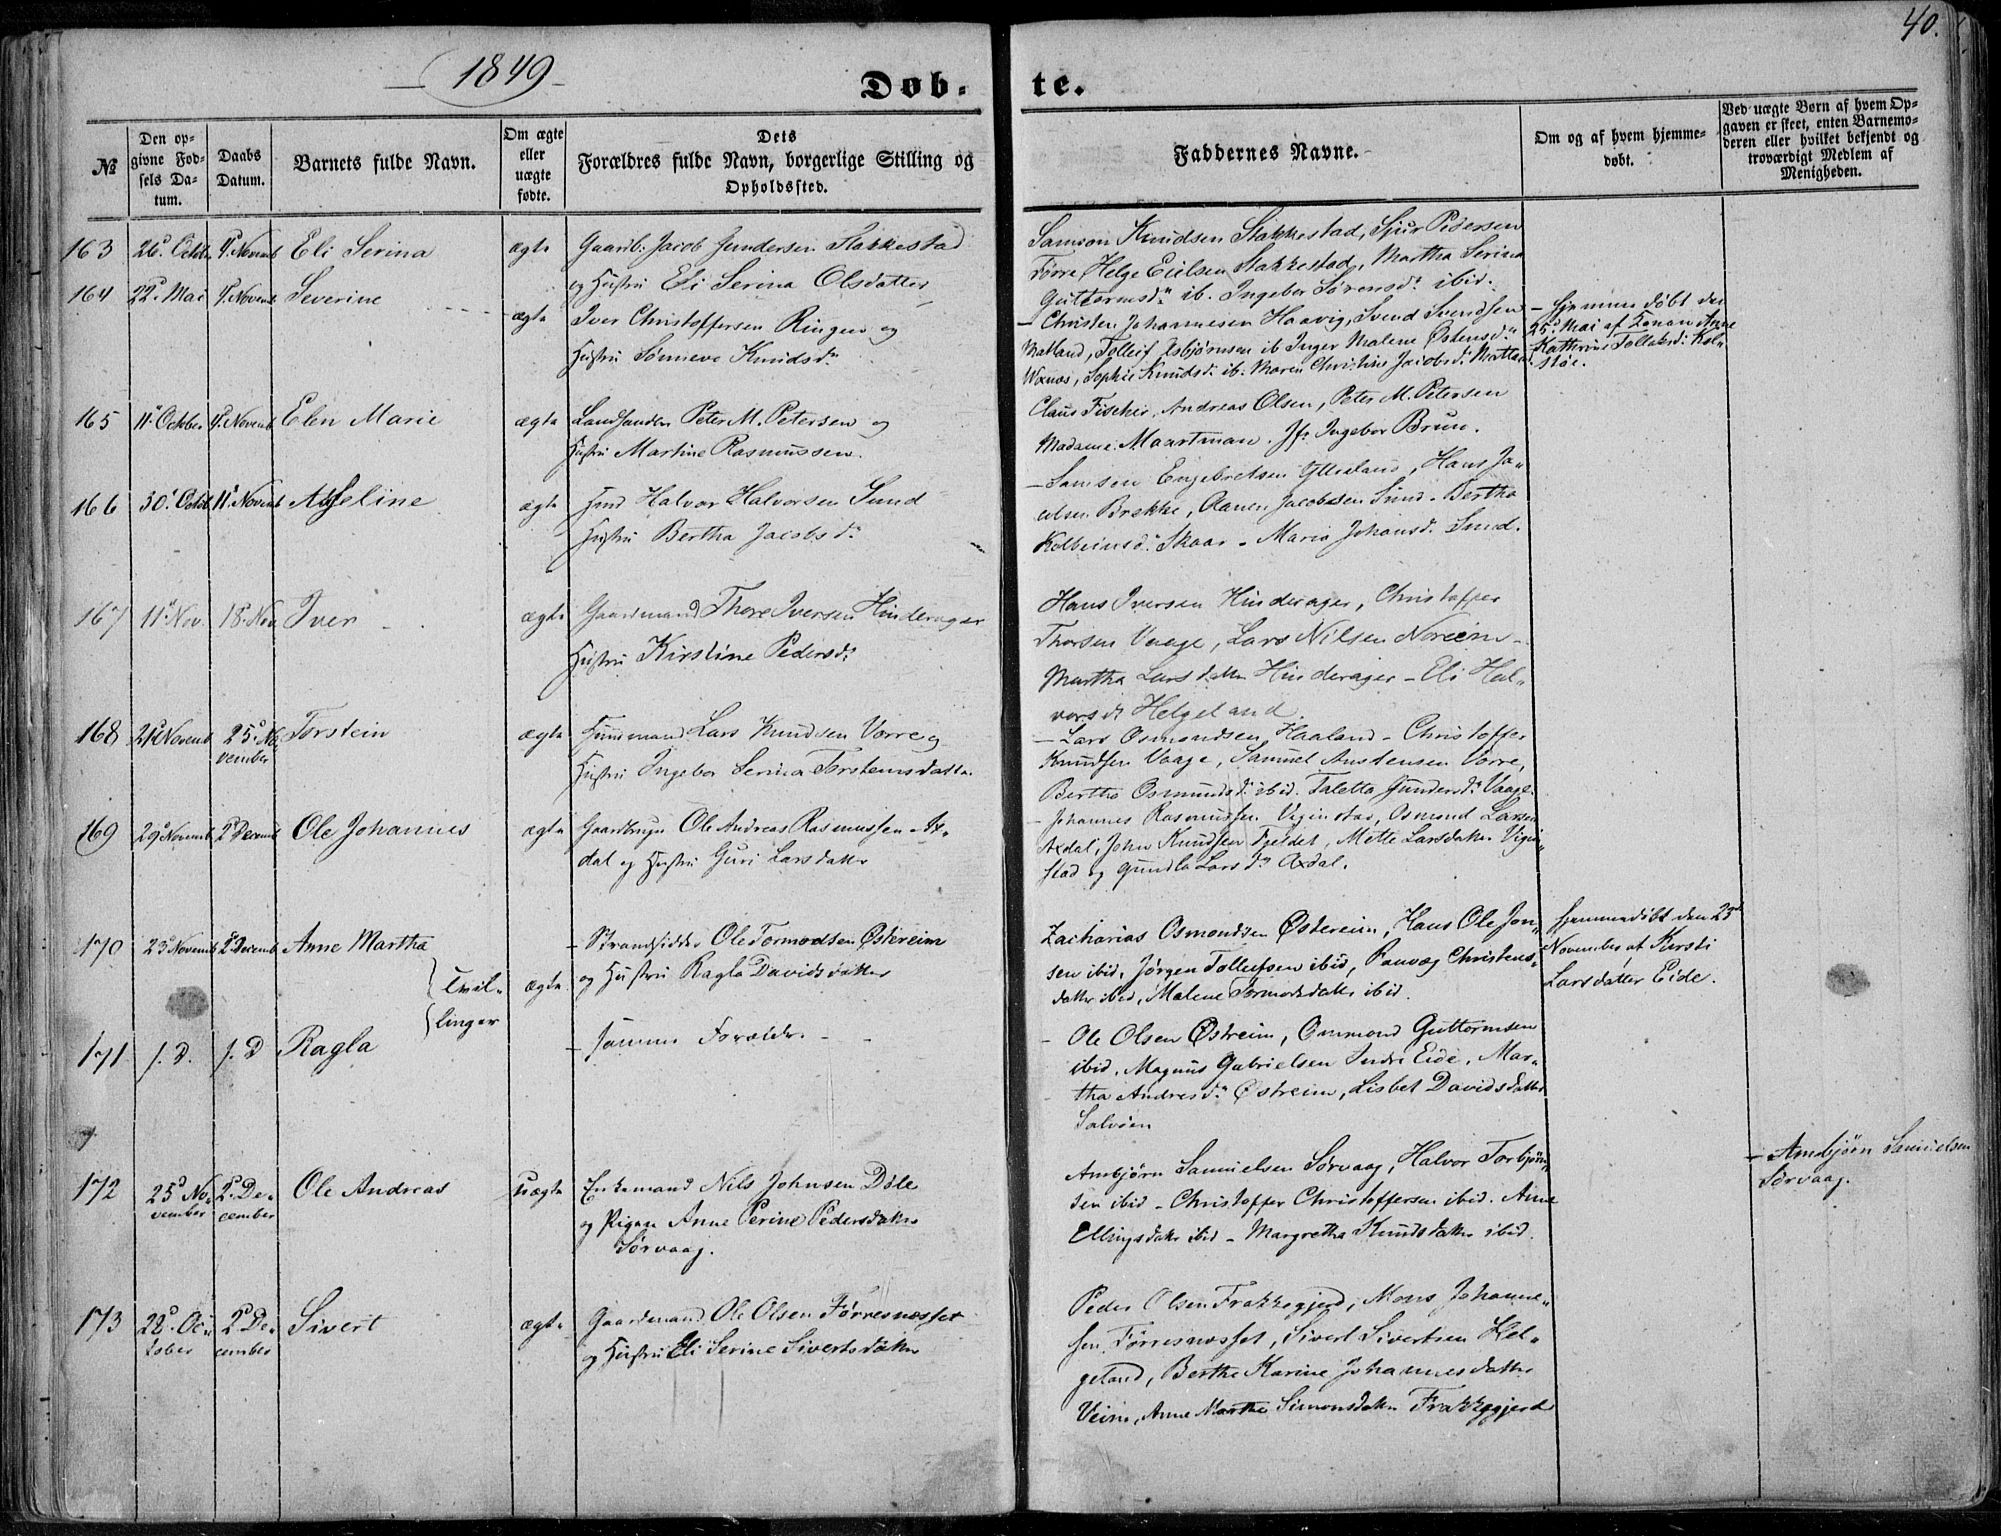 40.
1849
Døb-
te.
№
Den op-
givne Fød-
sels Da-
tum.
Daabs
Datum.
Barnets fulde Navn.
Om ægte
eller
uægte
fødte.
Dets
Forældres fulde Navn, borgerlige Stilling og
Opholdssted.
Faddernes Navne.
Om og af hvem hjemme-
døbt.
Ved uægte Børn af hvem Op-
gaven er skeet, enten Barnemo-
deren eller hvilket bekjendt og
troværdigt Medlem af
Menigheden.
163 26d. Octb. 4d. Novemb Eli Serina ægte Gaardb. Jacob Gundersen Stakkestad
og Hustru Eli Serina Olsdatter
Samson Knudsen Stakkestad, Sjur Pedersen
Førre, Helge Eielsen Stakkestad, Martha Serina
Guttormsdr ib. Ingebor Sørensdr ibid.
164 22d. Mai 4d. Novemb Severine ægte Iver Christoffersen Ringen og
Hustru Sønneve Knudsdr
- Christen Johannesen Haavig, Svend Svendsen
Matland, Tolleif Asbjørnsen ib Inger Malene Østensdr
Woxnæs, Sophie Knudsd. ib. Maren Christine Jacobsd. Matland
- Hjemmedøbt den
25d Mai af Konen Anne
Katherine Tollaksd. Kol-
støe.
165 11d October 4d. Novemb Elen Marie ægte Landhandler Peter M. Petersen og
Hustru Martine Rasmussen.
Claus Fischer, Andreas Olsen, Peter M. Petersen
Madame Maartman. Jfr Ingebor Brun.
166 30d. Octob 11d. Novemb Aseline ægte Hmd Halvor Halvorsen Sund
Hustru Bertha Jacobsdr
- Samson Engebretsen Hans Ja-
cobsen Brekke, Jacobsen Sund - Bertha
Kolbeinsd. Skaar - Maria Johansd. Sund.
167 11d. Nov. 18d. Nov Iver ægte Gaardmand Thore Iversen Hinderager
Hustru Kirstine Pedersd.
Hans Iversen Hinderager, Christoffer
Thorsen Vaage, Lars Nilsen Noreim -
Martha Larsdatter Hinderager - Eli Hal-
vorsdr Helgeland
168 21d Novemb 25d. No-
vember Torstein ægte Huusmand Lars Knudsen Vorre og
Hustru Ingebor Serina Torsteinsdatter
- Lars Osmondsen Haaland - Christoffer
Knudsen Vaage, Samuel Austensen Vorre,
Bertha Osmundsd. ibid. Taletta Gundersdr Vaage.
169 29d Novemb 2d Decemb Ole Johannes ægte Gaardbruger Ole Andreas Rasmussen Ax-
dal og Hustru Guri Larsdatter
- Johannes Rasmussen Viginstad, Osmond Larsen
Axdal, John Knudsen Fjeldet, Mette Larsdatter Vigin-
stad og Gundla Larsdr Axdal.
170 23d Novemb 2d Decemb Anne Martha - Strandsidder Ole Tormodsen Østreim
og Hustru Ragla Davidsdatter
{ Tvil-
{ linger ægte
Zacharias Osmondsen Østreim, Hans Ole Jon-
sen ibid, Jørgen Tollefsen ibid, Ranvæg Christens-
datter ibid, Malene Tormodsdatter ibid.
Hjemmedøbt den 23de
November af Kirsti
Larsdatter Eide.
171 s. D. s. D Ragla - samme Forældre. -
- Ole Olsen Østreim, Ommond Guttormsen
ibid, Magnus Gabrielsen Indre Eide, Mar-
tha Andresdr Østreim, Lisbet Davidsdatter
Salvøen
172 25d No-
vember 2d. De-
cember Ole Andreas uægte Enkemand Nils Johnsen Dale
og Pigen Anne Perine Pedersdatter
Sørvaag.
Ambjørn Samuelsen Sørvaag, Halvor Torbjørn-
sen ibid - Christoffer Christoffersen ibid. Anne
Ellingsdatter ibid - Margretha Knudsdatter ibid.
- Ambjørn Samuelsen
Sørvaag.
173 22d. Oc-
tober 2d De-
cember Sivert ægte Gaardmand Ole Olsen Førresnæsset
og Hustru Eli Serine Sivertsdatter
Peder Olsen Frakkagjerd, Mons Johanne-
sen Førresnæsset, Sivert Sivertsen Hel-
geland, Berthe Karine Johannesdatter
Veim, Anne Marthe Simonsdatter Frakkagjerd